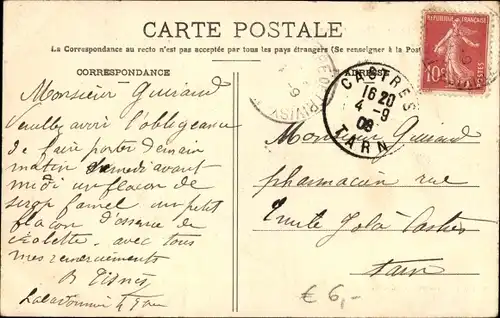 CARTE POSTALE
La Correspondance au recto n'est pas acceptée par tous les pays étrangers (Se renseigner à la Poste
CORRESPONDANCE
ADRESSE
Monsieur Guiraud
Veuillez avoir l'obligeance
de faire porter demain
matin Samedi avant
midi un flacon de
sirop famel un petit
flacon d'essence de
violette avec tous
mes remerciements
Monsieur Guiraud
pharmacien rue
Emile Zola Castres
Tarn
REPUBLIQUE FRANÇAISE
10c
POSTES
CASTRES
16 20
4 -9
08
TARN
€ 6,-